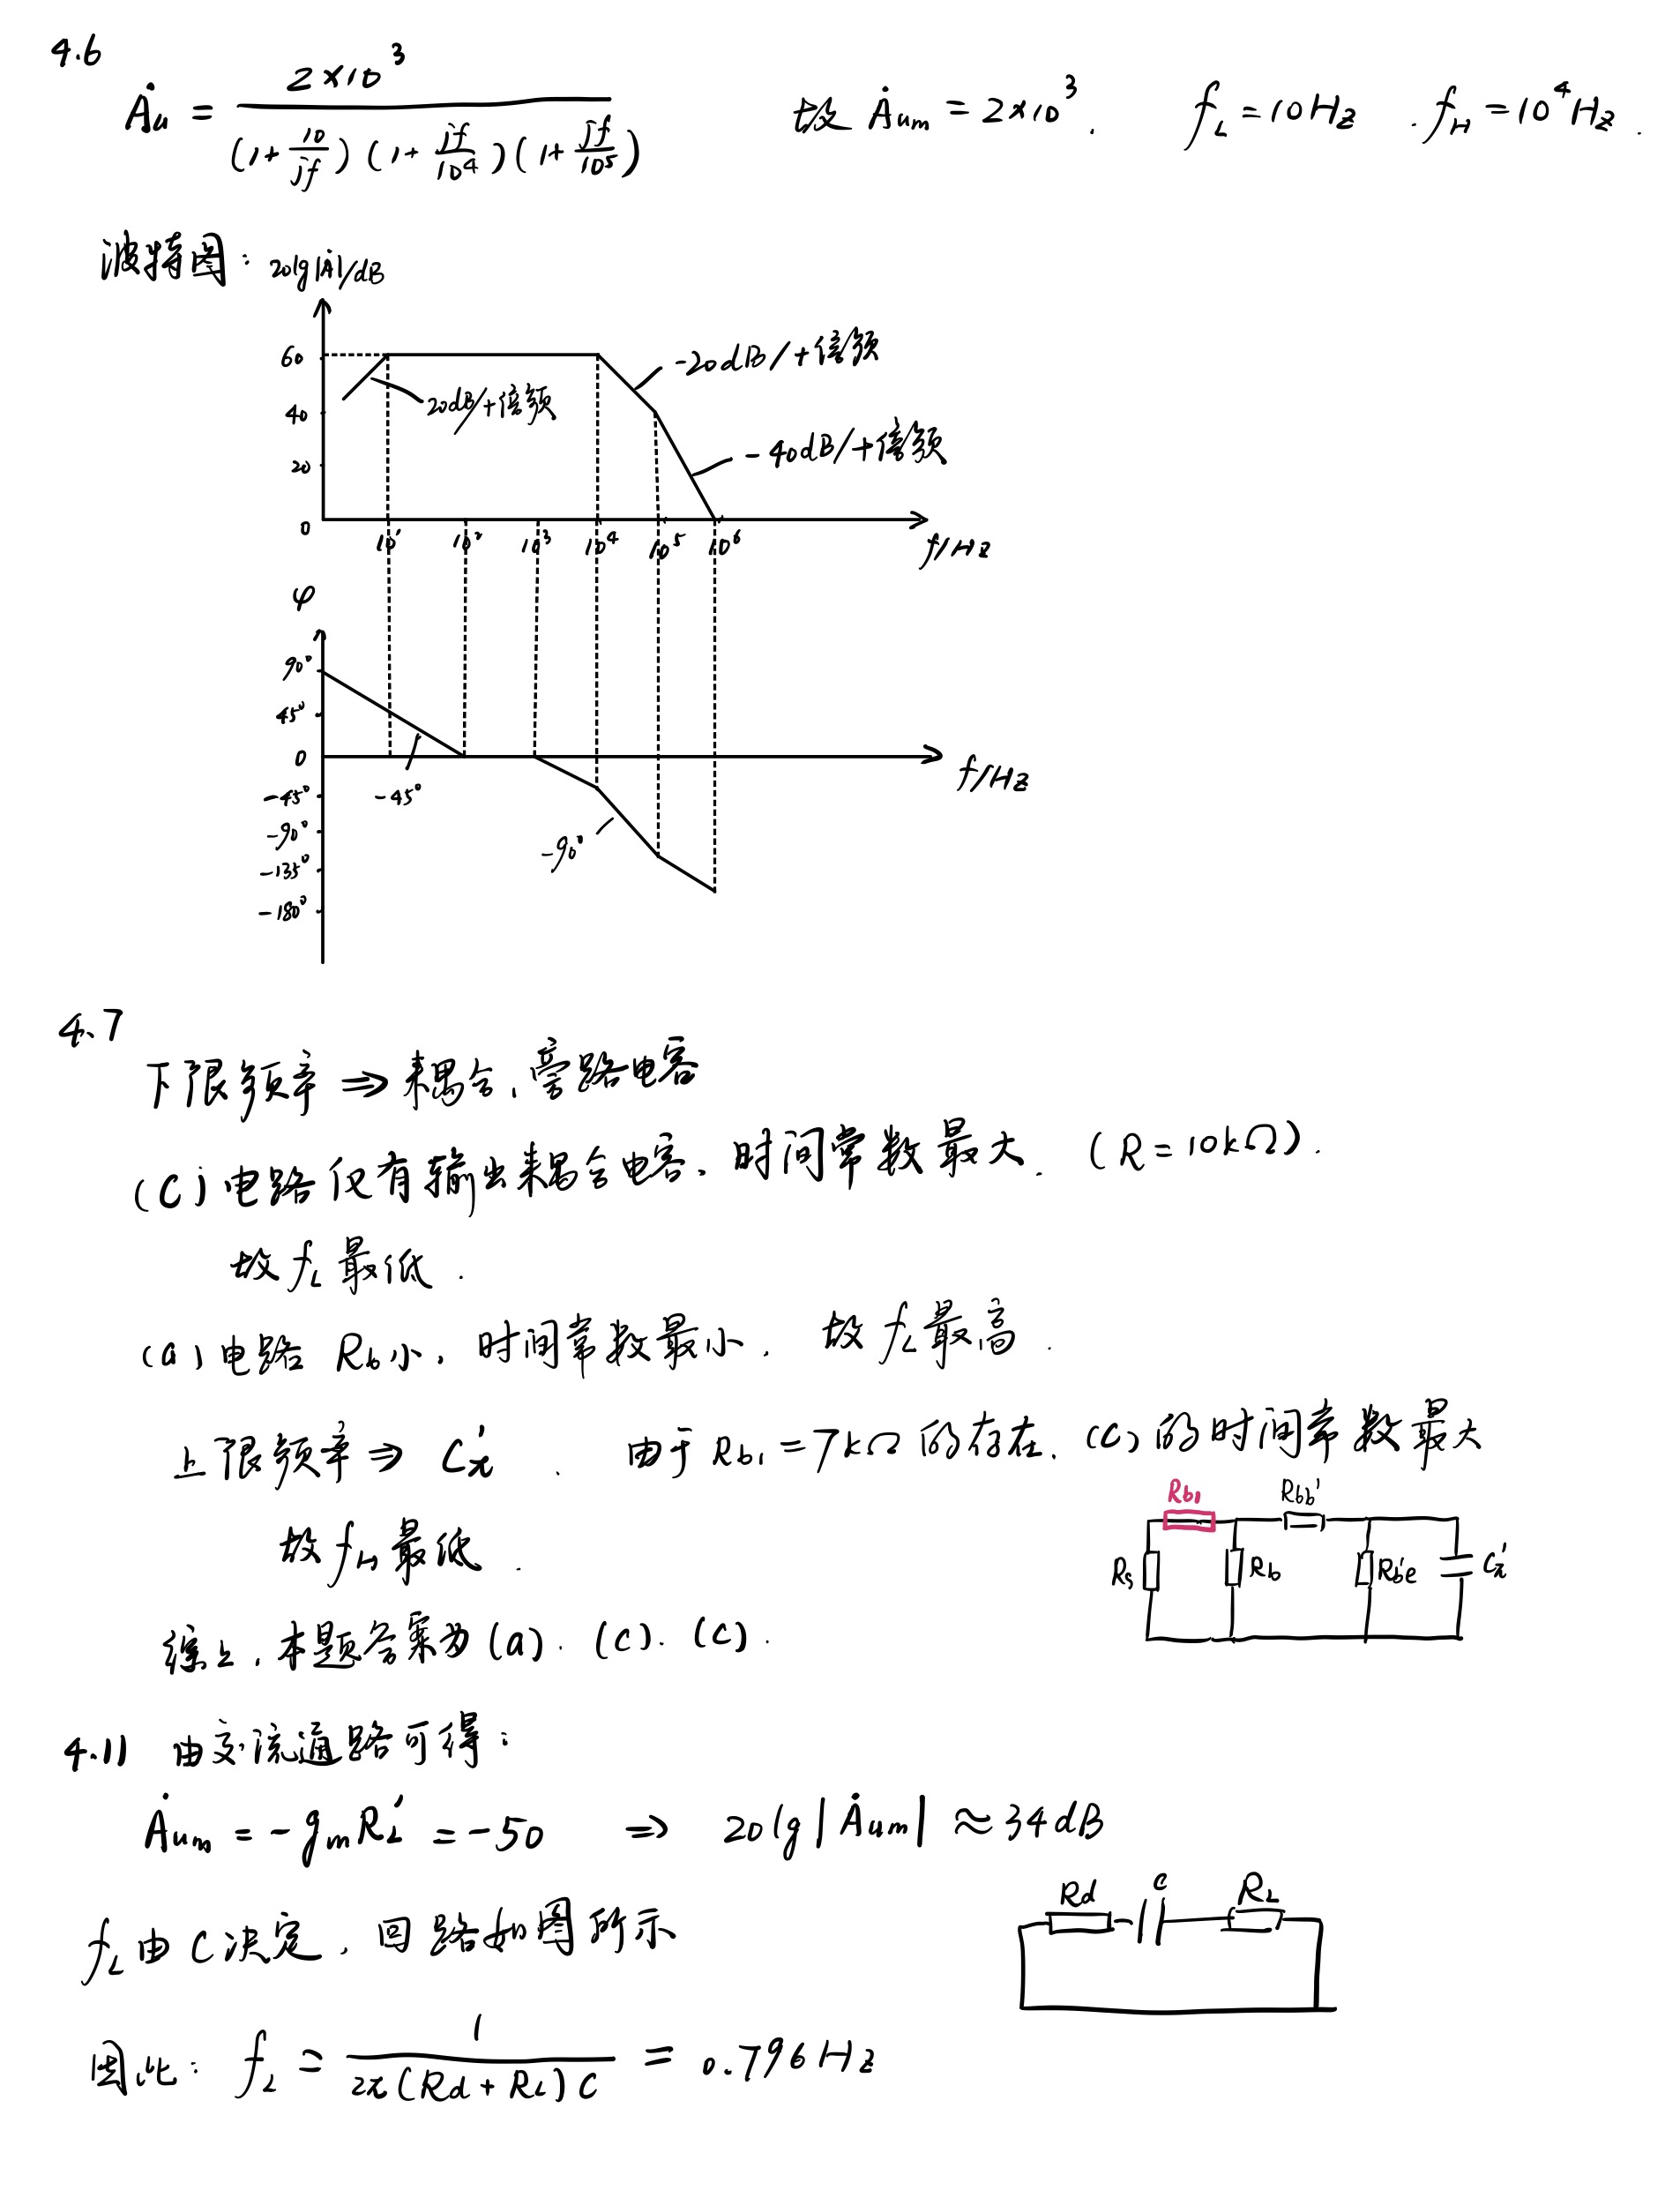 4.6
Au = 2×10³ / ((1+10/jf)(1+jf/10⁴)(1+jf/10⁵)) 故 Aum = 2×10³. fL = 10Hz . fH = 10⁴Hz .
波特图: 20lg|A|/dB
60
40
20
0
20dB/十倍频
-20dB/十倍频
-40dB/十倍频
10¹ 10² 10³ 10⁴ 10⁵ 10⁶ f/Hz
φ
90°
45°
0
-45°
-90°
-135°
-180°
-45°
-90°
f/Hz
4.7
下限频率 ⇒ 耦合、旁路电容
(C) 电路仅有输出耦合电容, 时间常数最大. (R=10kΩ).
故 fL 最低.
(a) 电路 Rb小, 时间常数最小. 故 fL最高.
上限频率 ⇒ Cπ' . 由于 Rb1=7kΩ 的存在, (C) 的时间常数最大
故 fH 最低.
Rb1 Rbb'
Rs Rb Rb'e Cπ'
综上, 本题答案为 (a). (c). (c).
4.11 由交流通路可得:
Aum = -gmRL' = -50 ⇒ 20lg|Aum| ≈ 34dB
Rd C RL
fL 由 C 决定, 回路如图所示
因此: fL = 1 / (2π(Rd+RL)C) = 0.796Hz